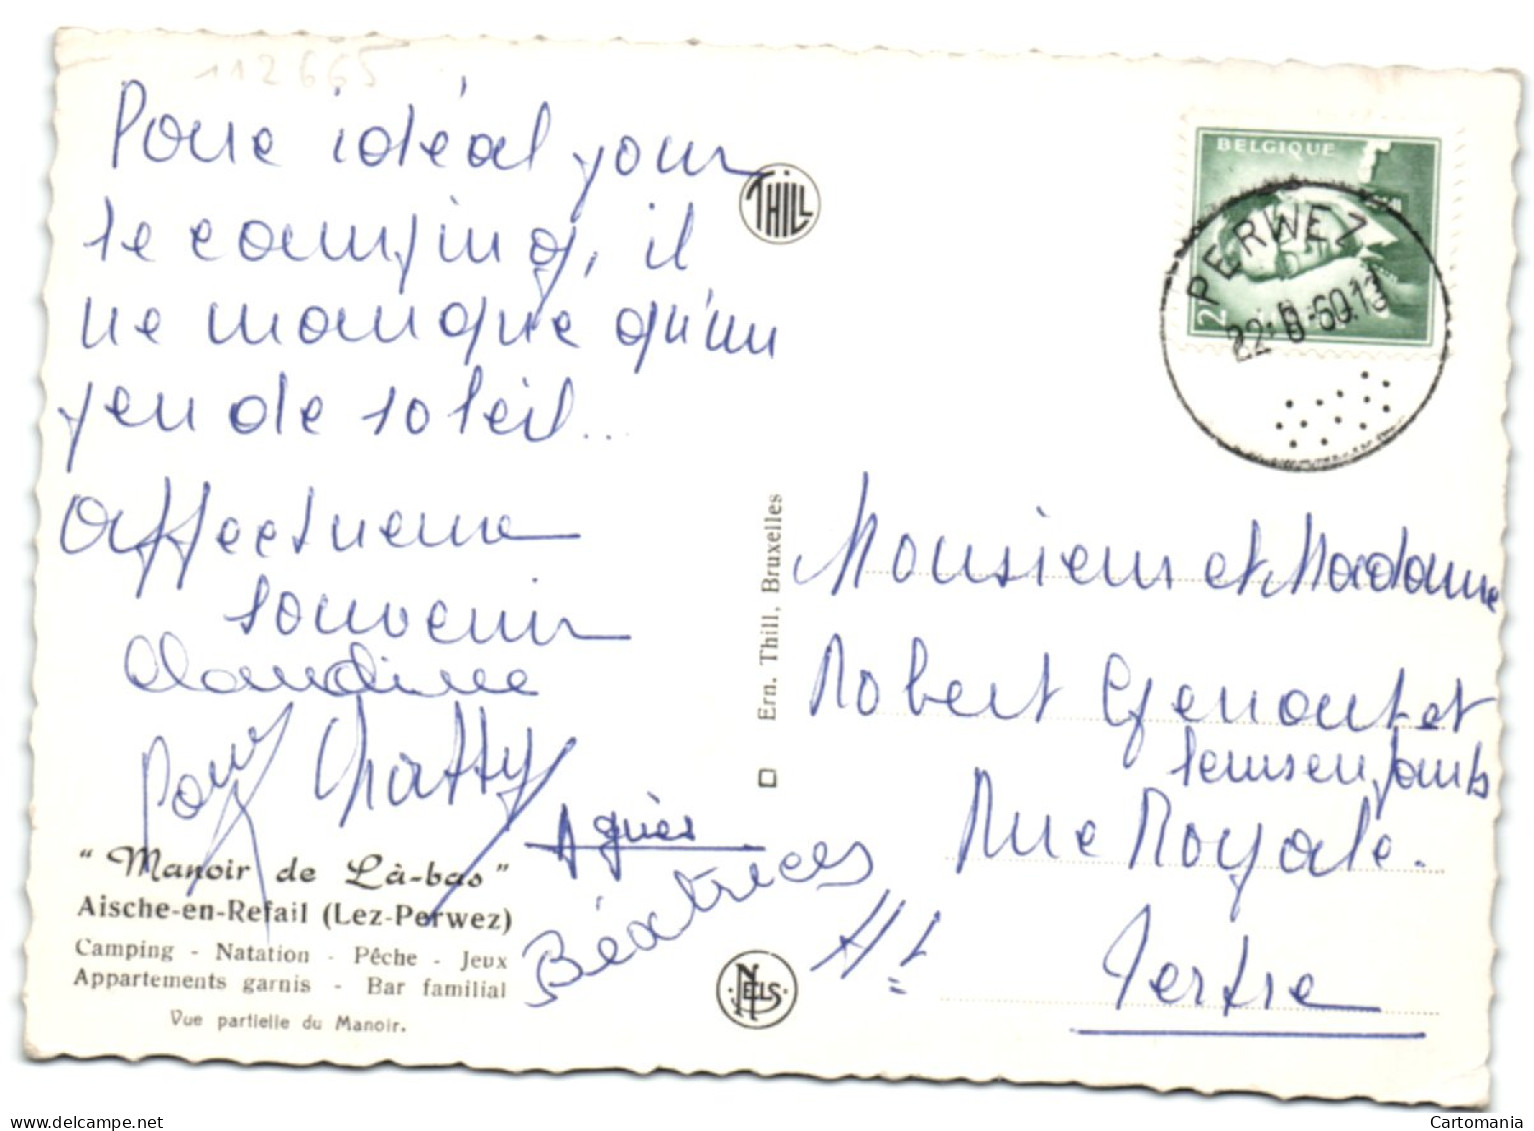 112665
Pour idéal pour
le camping, il
ne manque qu'un
peu de soleil...
Affectueux
souvenir
Claudine
Paul Chatty
Agnès
Béatrices
" Manoir de Là-bas "
Aische-en-Refail (Lez-Perwez)
Camping - Natation - Pêche - Jeux
Appartements garnis - Bar familial
Vue partielle du Manoir.
THILL
Ern. Thill. Bruxelles
NELS
BELGIQUE
2
PERWEZ
Monsieur et Madame
Robert Genout et
leurs enfants
Rue Royale.
Ht
Tertre
delcampe.net
Cartomania